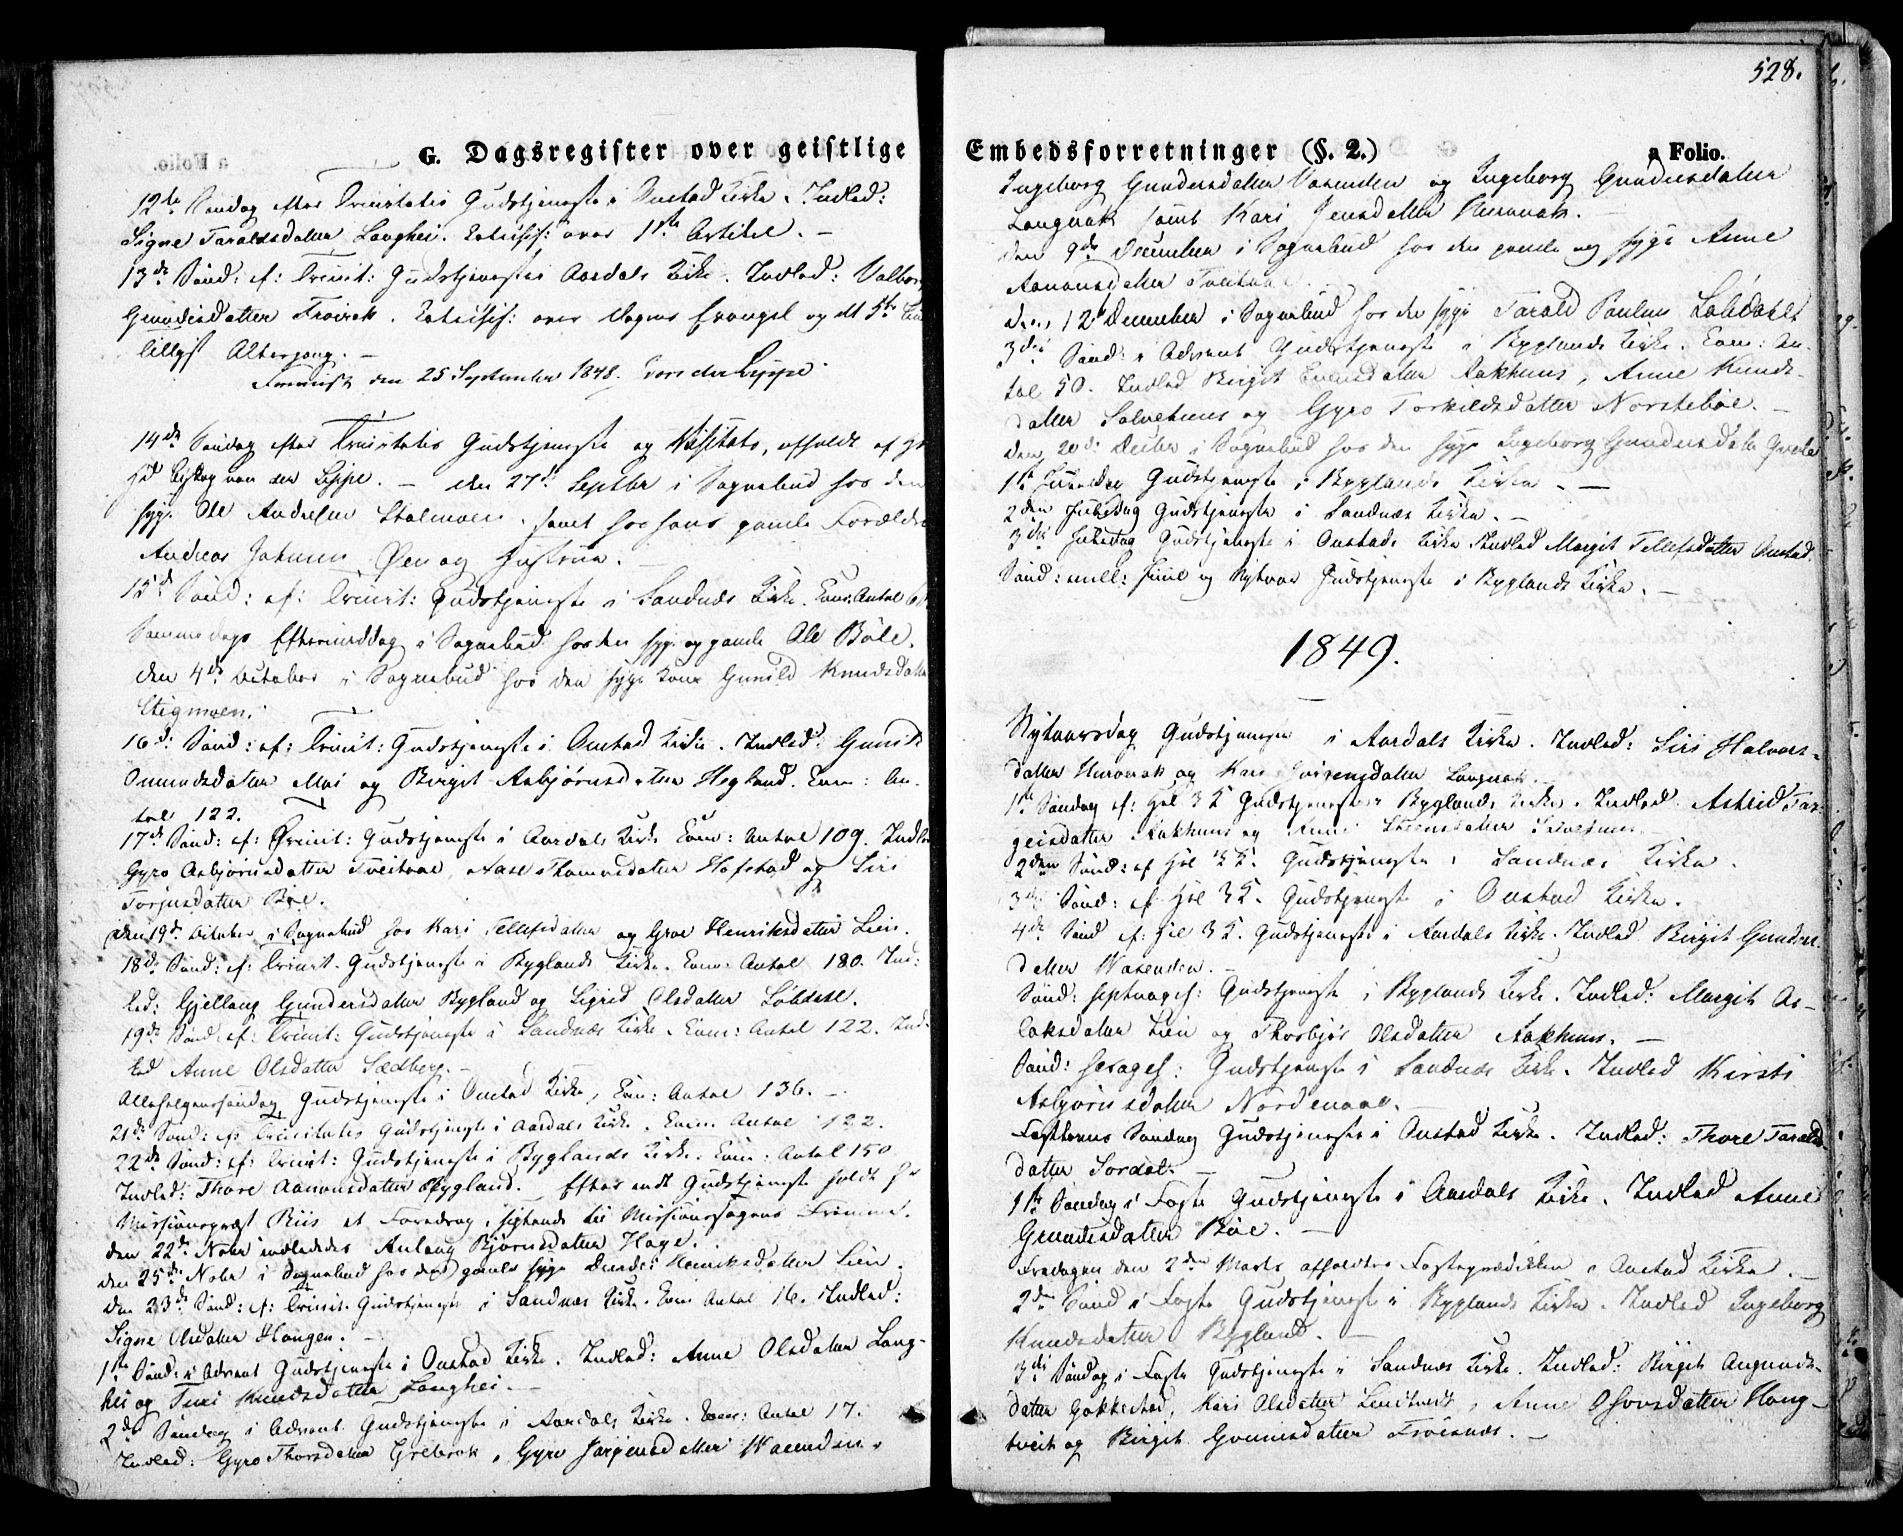 528.
G. Dagsregister over geistlige
12te Søndag efter Trinitatis Gudstjeneste i Austad Kirke. Indled:
Signe Taraldsdatter Langhei. Catechis: over 1ste Artikel. –
13de Sønd: ef: Trinit: Gudstjeneste i Aardals Kirke. Indled: Valborg
Gundersdatter Frøirak. Catechis: over dagens Evangel og det 5te
tilligst Altergang. –
den 25 September 1848. von der Lippe.
14de Søndag efter Trinitatis Gudstjeneste og Visitats, afholdt af
Biskop von der Lippe. – den 27de Septbr i Sognebud hos den
syge Ole Andersen Stalmoen, samt hos hans gamle Forældre
Andreas Johnsen Øen og Hustrue.
15de Sønd: ef: Trinit: Gudstjeneste i Sandnæs Kirke. Com: Antal
Samme Dags Eftermiddag i Sognebud hos den syge og gamle Ole Bøle.
den 4de October i Sognebud hos den syge Kone Gunild Knudsdatter
Stigmoen.
16de Sønd: ef: Trinit: Gudstjeneste i Austad Kirke. Indled: Gunild
Omundsdatter Moi og Birgit Asbjørnsdatter Hegland. Com: An-
tal 122.
17de Sønd: ef: Trinit: Gudstjeneste i Aardals Kirke Com: Antal 109. Indled
Gyro Asbjørnsdatter Tveitraae, Aase Thomasdatter Hofstad og Siri
Torjusdatter Bøe.
den 19de October i Sognebud hos Kari Tellefsdatter og Groe Henriksdatter Lien.
18de Sønd: ef: Trinit. Gudstjeneste i Byglands Kirke. Com: Antal 180. Ind-
led: Gjellaug Gundersdatter Bygland og Sigrid Olsdatter Lobdal.
19de Sønd: ef: Trinit: Gudstjeneste i Sandnæs Kirke. Com: Antal 122. Ind-
led Anne Olsdatter Sædberg. –
Allehelgenssøndag Gudstjeneste i Austad Kirke, Com: Antal 136. –
21de Sønd: ef: Trinitatis Gudstjeneste i Aardals Kirke. Com: Antal 122.
22de Sønd: ef: Trinit: Gudstjeneste i Byglands Kirke. Com: Antal 150
Indled: Thore Aanonsdatter Bygland. – Efter endt Gudstjeneste holdt Hr
Missionspræst Riis et Foredrag, sigtende til Missionssagens Fremme.
den 22de Nobr indlededes Anlaug Bjørnsdatter Hage.
den 25de Nobr i Sognebud hos den gamle syge Henriksdatter Lien.
den 23de Sønd: ef: Trinit. Gudstjeneste i Sandnæs Kirke. Com Antal 16. Indled:
Signe Olsdatter Haugen. –
1ste Sønd: i Advent Gudstjeneste i Austad Kirke. Indled: Anne Olsdatter Lang-
hei og Turi Knudsdatter Langhei. –
2den Søndag i Advent Gudstjeneste i Aardals Kirke. Com: Antal 17.
Indled: Gyro Thorsdatter Grebrok, Gyro Jørgensdatter Vasenden,
Embedsforretninger (§. 2.)
a Folio.
Ingeborg Gundersdatter Vasenden og Ingeborg Gundersdatter
Langnak samt Kari Jensdatter Huronak. –
den 9de December i Sognebud hos den gamle og syge Anne
Aanonsdatter Tveitraae.
den 12 December i Sognebud hos den syge Tarald Paulsen Lobdahl
3die Sønd: i Advent Gudstjeneste i Byglands Kirke. Com: An-
tal 50. Indled Birgit Evensdatter Aakhuus, Anne Knuds-
datter Solvehuus og Gyro Torkildsdatter Norstebøe. –
den 20de Decbr i Sognebud hos den syge Ingeborg Gundersdatter
1ste Juledag Gudstjeneste i Byglands Kirke. –
2den Juledag Gudstjeneste i Sandnæs Kirke. –
3die Juledag Gudstjeneste i Austads Kirke. Indled Margit Tellefsdatter Austad.
Sønd: mell: Juul og Nytaar Gudstjeneste i Byglands Kirke. –
1849.
Nytaarsdag Gudstjeneste i Aardals Kirke. Indled: Siri Halvors-
datter Huronak og Kari datter Langnak. –
1ste Søndag ef: Hel 3 K Gudstjeneste i Byglands Kirke. Indled: Astrid Tar-
geisdatter Aakhuus og Anne
2den Sønd: ef Hel 3 K. Gudstjeneste i Sandnæs Kirke.
3die Sønd: ef Hel 3 K. Gudstjeneste i Austad Kirke.
4de Sønd ef: Hel 3 K. Gudstjeneste i Aardals Kirke. Indled Birgit Gunders-
datter Vasenden. –
Sønd: septuages: Gudstjeneste i Byglands Kirke. Indled: Margit As-
laksdatter Lien og Thorbjør Olsdatter Aakhuus. –
Sønd: sexages: Gudstjeneste i Sandnæs Kirke. Indled Kirsti
Asbjørnsdatter Nordenaae. –
Fastelavns Søndag Gudstjeneste i Austad Kirke. Indled: Thore Taralds-
datter Sordal. –
1ste Søndag i Faste Gudstjeneste i Aardals Kirke. Indled Anne
Gundersdatter Bøe. –
Fredagen den 2den Marts afholdtes Fasteprædiken i Austad Kirke. –
2den Sønd i Faste Gudstjeneste i Byglands Kirke. Indled Ingeborg
Knudsdatter Bygland. –
3die Søndag i Faste Gudstjeneste i Sandnæs Kirke. Indled: Birgit Augunds-
datter Gakkestad, Kari Olsdatter Lendtvedt, Anne Osovsdatter Haug-
tveit og Birgit Gunnersdatter Frøisnæs. –